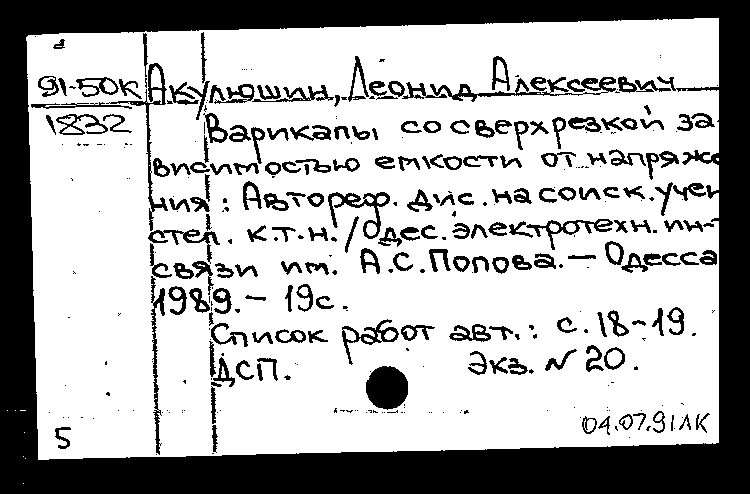 91-50К Акулюшин, Леонид Алексеевич
1832 Варикапы со сверхрезкой за-
висимостью емкости от напряже
ния : Автореф. дис. на соиск. учен.
степ. к.т.н. / Одес. электротехн. ин-
связи им. А.С.Попова. — Одесса
1989. – 19с.
Список работ авт. : с. 18-19.
ДСП. Экз. N 20.
5 04.07.91ЛК